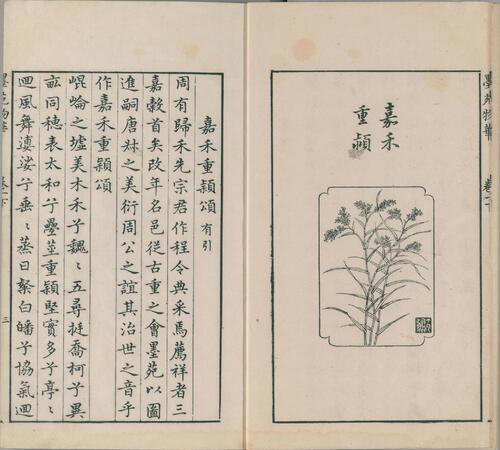 墨苑物華 卷一下
嘉禾
重穎
嘉禾重穎頌 有引
周有歸禾先宗君作程令典采焉薦祥者三
嘉穀首矣改年名邑從古重之會墨苑以圖
進嗣唐叔之美衍周公之誼其治世之音乎
作嘉禾重穎頌
崐崘之墟美木禾兮巍〻五尋挺喬柯兮異
畝同穗表太和兮壘莖重穎堅實多兮亭〻
迴風舞娑兮垂〻蒸日粲白皤兮協氣迴
墨苑物華 卷一下 三